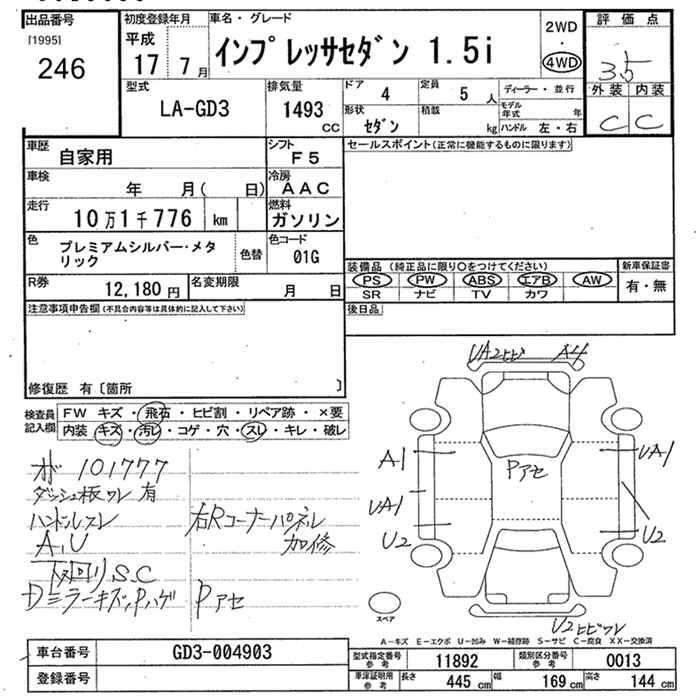 出品番号
[1995]
246
初度登録年月
平成
17 7月
車名・グレード
インプレッサセダン 1.5i
2WD
・
4WD
評価点
3.5
外装 内装
C C
型式
LA-GD3
排気量
1493
CC
ドア 4
定員 5 人
形状 セダン
積載 kg
ディーラー・並行
モデル年式 年
ハンドル 左・右
車歴
自家用
シフト
F5
車検
年 月( 日)
冷房
AAC
走行
10万1千776 km
燃料
ガソリン
色
プレミアムシルバー・メタ
リック
色替
色コード
01G
R券
12,180 円
名変期限
月 日
注意事項申告欄(不具合内容等は具体的に記入して下さい)
修復歴 有〔箇所 〕
セールスポイント(正常に機能するものに限ります)
装備品(純正品に限り○をつけてください)
新車保証書
PS PW ABS エアB AW
有・無
SR ナビ TV カワ
後日品
検査員
記入欄
FW キズ・飛石・ヒビ割・リペア跡・×要
内装 キズ・汚レ・コゲ・穴・スレ・キレ・破レ
オド 101777
ダッシュ板ワレ有
ハンドルスレ
A,U
下回りS.C
Dミラーキズ,Pハゲ
右Rコーナーパネル
加修
Pアセ
UA2ヒビ A4
A1
UA1
U2
Pアセ
UA1
U2
U2ヒビワレ
スペア
A-キズ E-エクボ U-凹み W-補修跡 S-サビ C-腐食 XX-交換済
車台番号
GD3-004903
登録番号
型式指定番号
参考
11892
類別区分番号
参考
0013
車庫証明用
参考
長さ 445 cm
幅 169 cm
高さ 144 cm